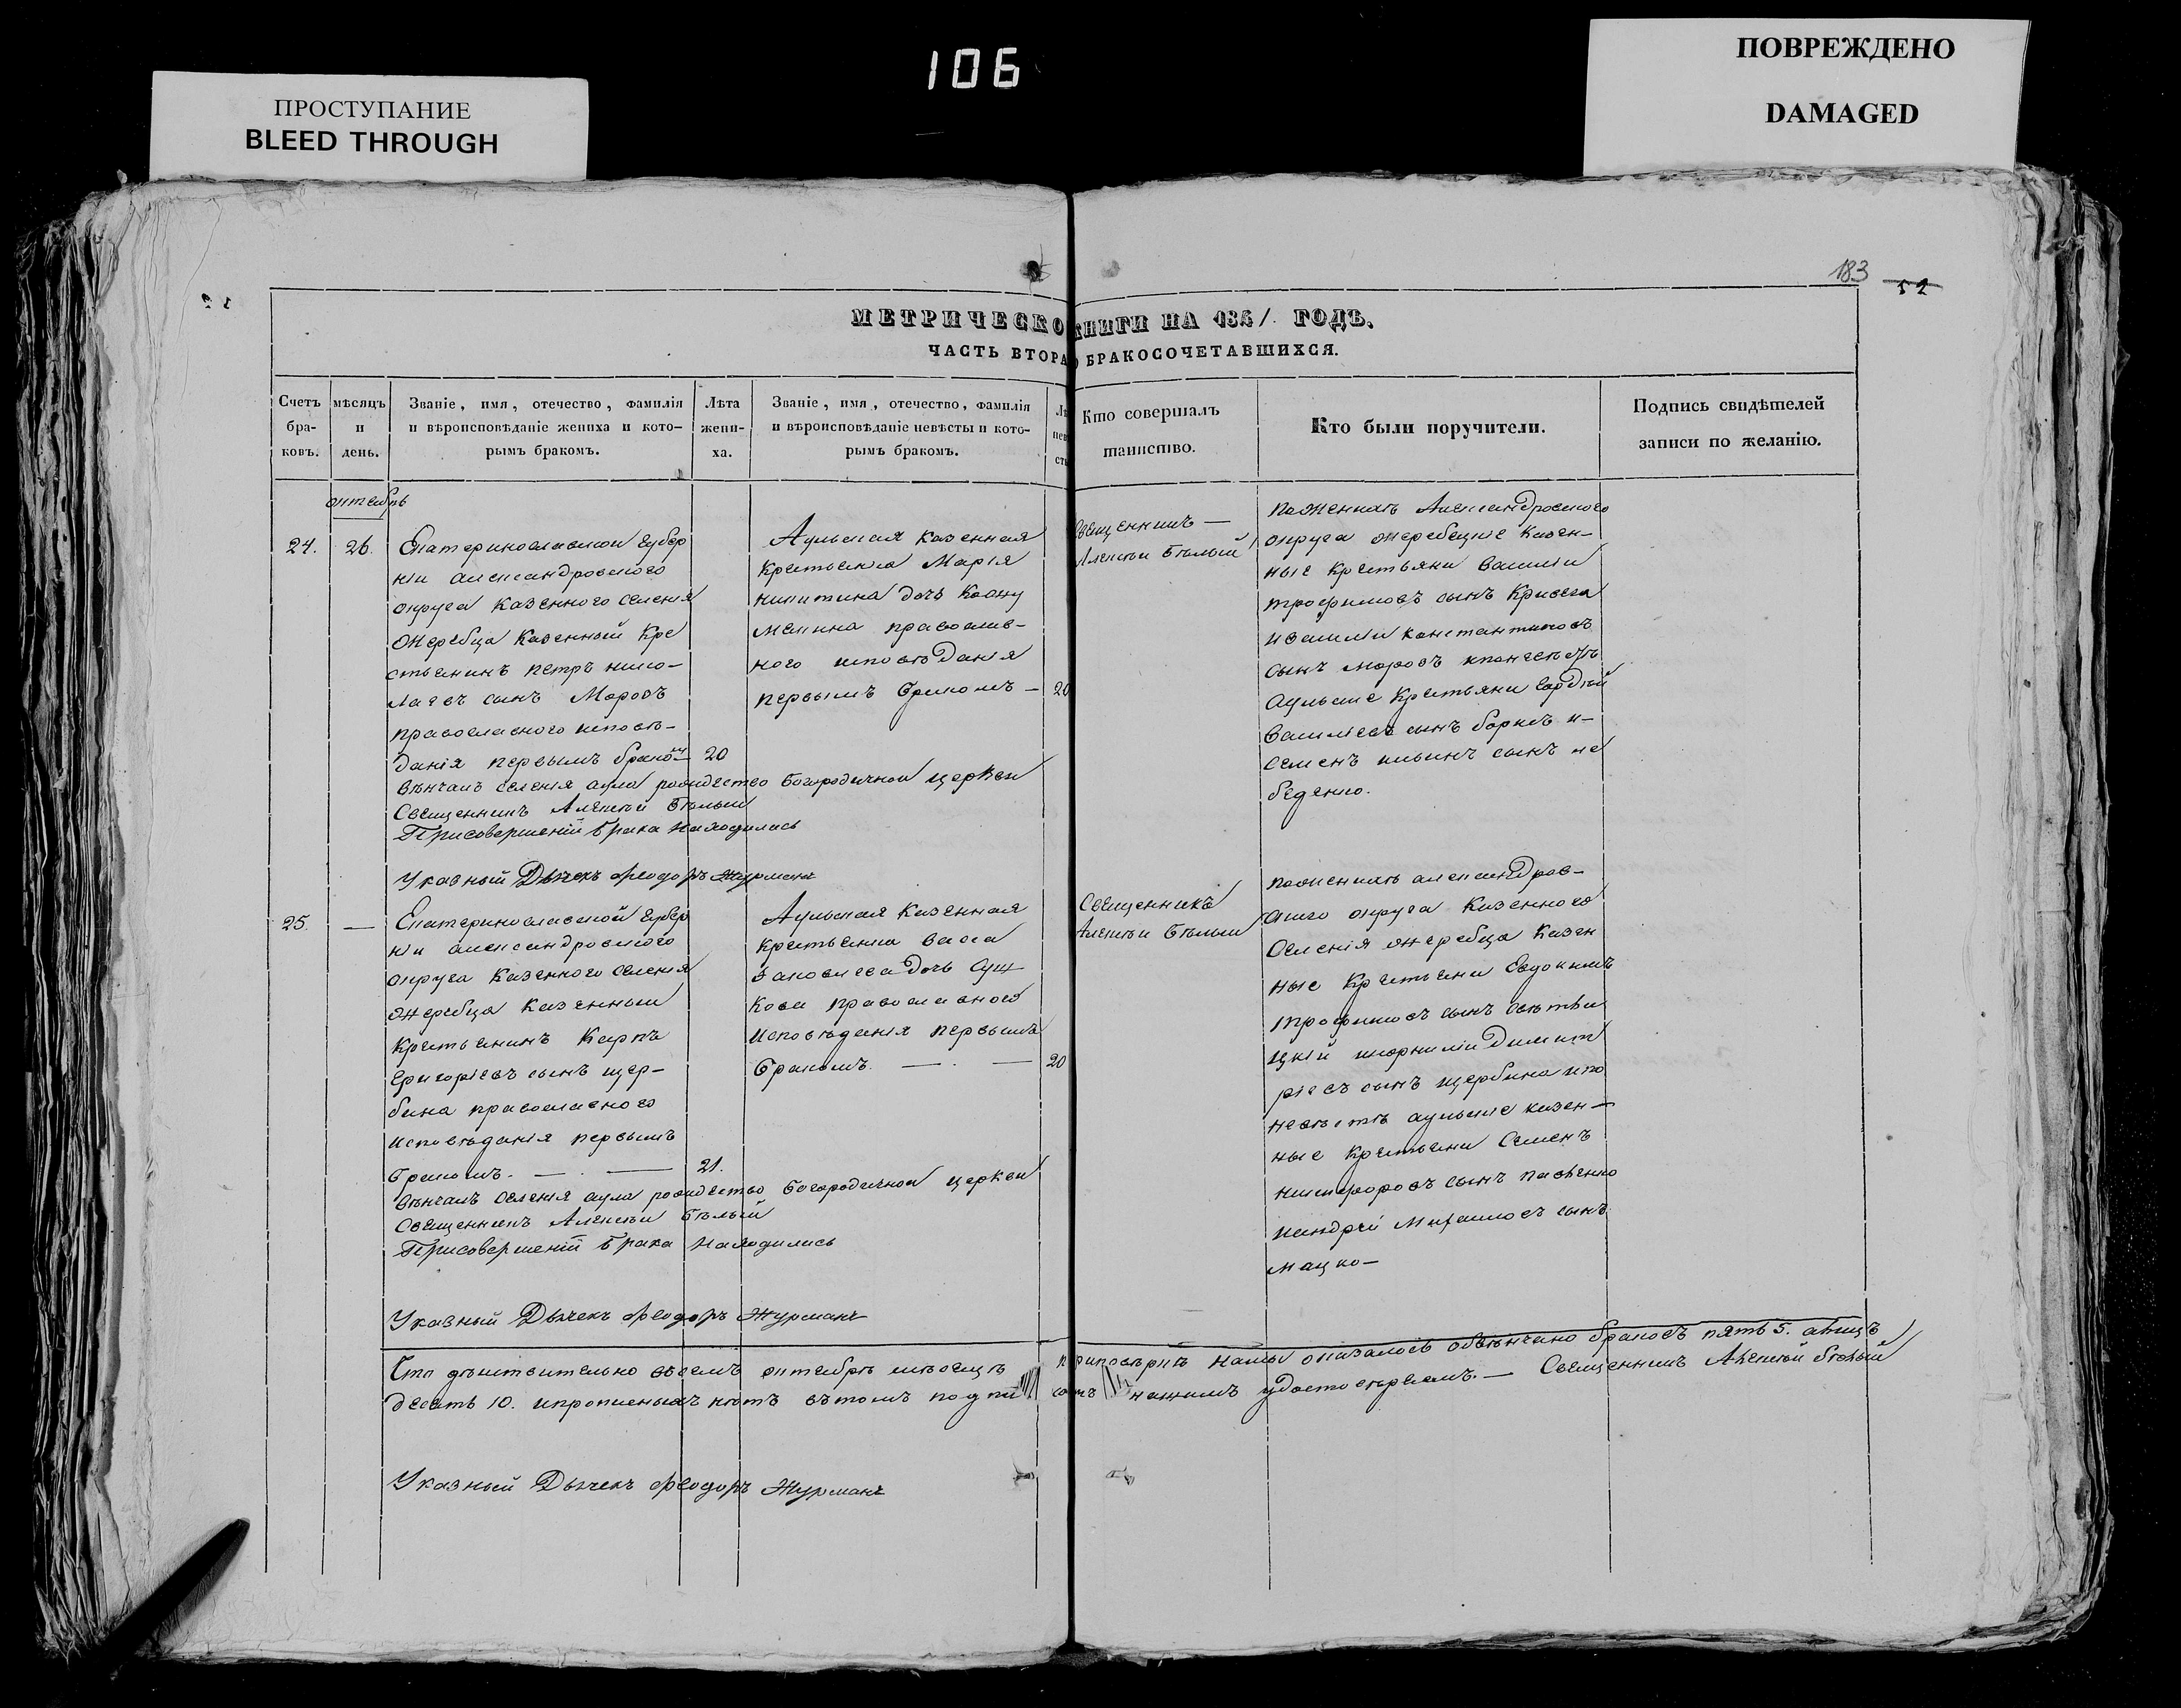 106
ПРОСТУПАНИЕ
BLEED THROUGH
ПОВРЕЖДЕНО
DAMAGED
183
52
МЕТРИЧЕСКО КНИГИ НА 1851. ГОДЪ,
ЧАСТЬ ВТОРА О БРАКОСОЧЕТАВШИХСЯ.
Счетъ бра- ковъ.
мѣсяцъ и день.
Званіе, имя, отечество, фамилія
и вѣроисповѣданіе жениха и кото-
рымъ бракомъ.
Лѣта жени- ха.
Званіе, имя, отечество, фамилія
и вѣроисповѣданіе невѣсты и кото-
рымъ бракомъ.
Кто совершалъ
таинство.
Кто были поручители.
Подпись свидѣтелей
записи по желанію.
октебрь
24.
26.
Екатеринославской Губер
ніи александровского
округа казенного селенія
Жеребца Казенный Кре
стьенинъ петръ нико-
лаевъ сынъ Морозъ
православного исповѣ-
данія первымъ браком
20
Аульская казенная
крестьенка Марія
никитина дочь
православ-
ного исповѣданія
первымъ бракомъ —
20
Священникъ —
Алексѣй Бѣлый
По женихѣ Александровского
округа жеребецкіе Казен-
ные крестьяни василій
трофимовъ сынъ Кривега
и василій константиновъ
сынъ морозъ и по невѣстѣ
аульскіе Крестьяни
васильевъ сынъ и-
семенъ сынъ ле
беденко.
вѣнчалъ селенія аула рождество Богородичной церкви
Священникъ Алексѣй Бѣлый
При совершеній брака находились
Указный Дьячекъ Феодоръ Журманъ
25.
—
Екатеринославской Губер
ніи александровского
округа Казенного селенія
жеребца Казенный
Крестьенинъ Карпъ
Григоріевъ сынъ щер-
бина православного
исповѣданія первымъ
Бракомъ. — . —
21.
Аульская Казенная
крестьенка васса
дочь Сущ
кова православного
исповѣданія первымъ
Бракомъ. — . —
20
Священникъ
Алексѣй Бѣлый
По женихѣ александров-
ского округа Казенного
селенія жеребца Казен
ные Крестьени Евдокимъ
трофимовъ сынъ
цкій и корнилій Димит
ріевъ сынъ щербина и по
невѣстѣ аульскіе казен-
ные крестьени Семенъ
никифоровъ сынъ
и андрей Михаиловъ сынъ
мацко-
вѣнчалъ селенія аула рождество Богородичной церкви
Священникъ Алексѣй Бѣлый
При совершеній брака находились
Указный Дьячекъ Феодоръ Журманъ
Что дѣиствительно въ семъ октебрѣ мѣсецѣ по повѣркѣ нашей оказалось обвѣнчано браковъ пять 5. а лицъ
десеть 10. и пропиеныхъ нѣтъ въ томъ подпи сомъ нашимъ удостоверяемъ. — Священникъ Алексѣй Бѣлый
Указный Дьячекъ Феодоръ Журманъ